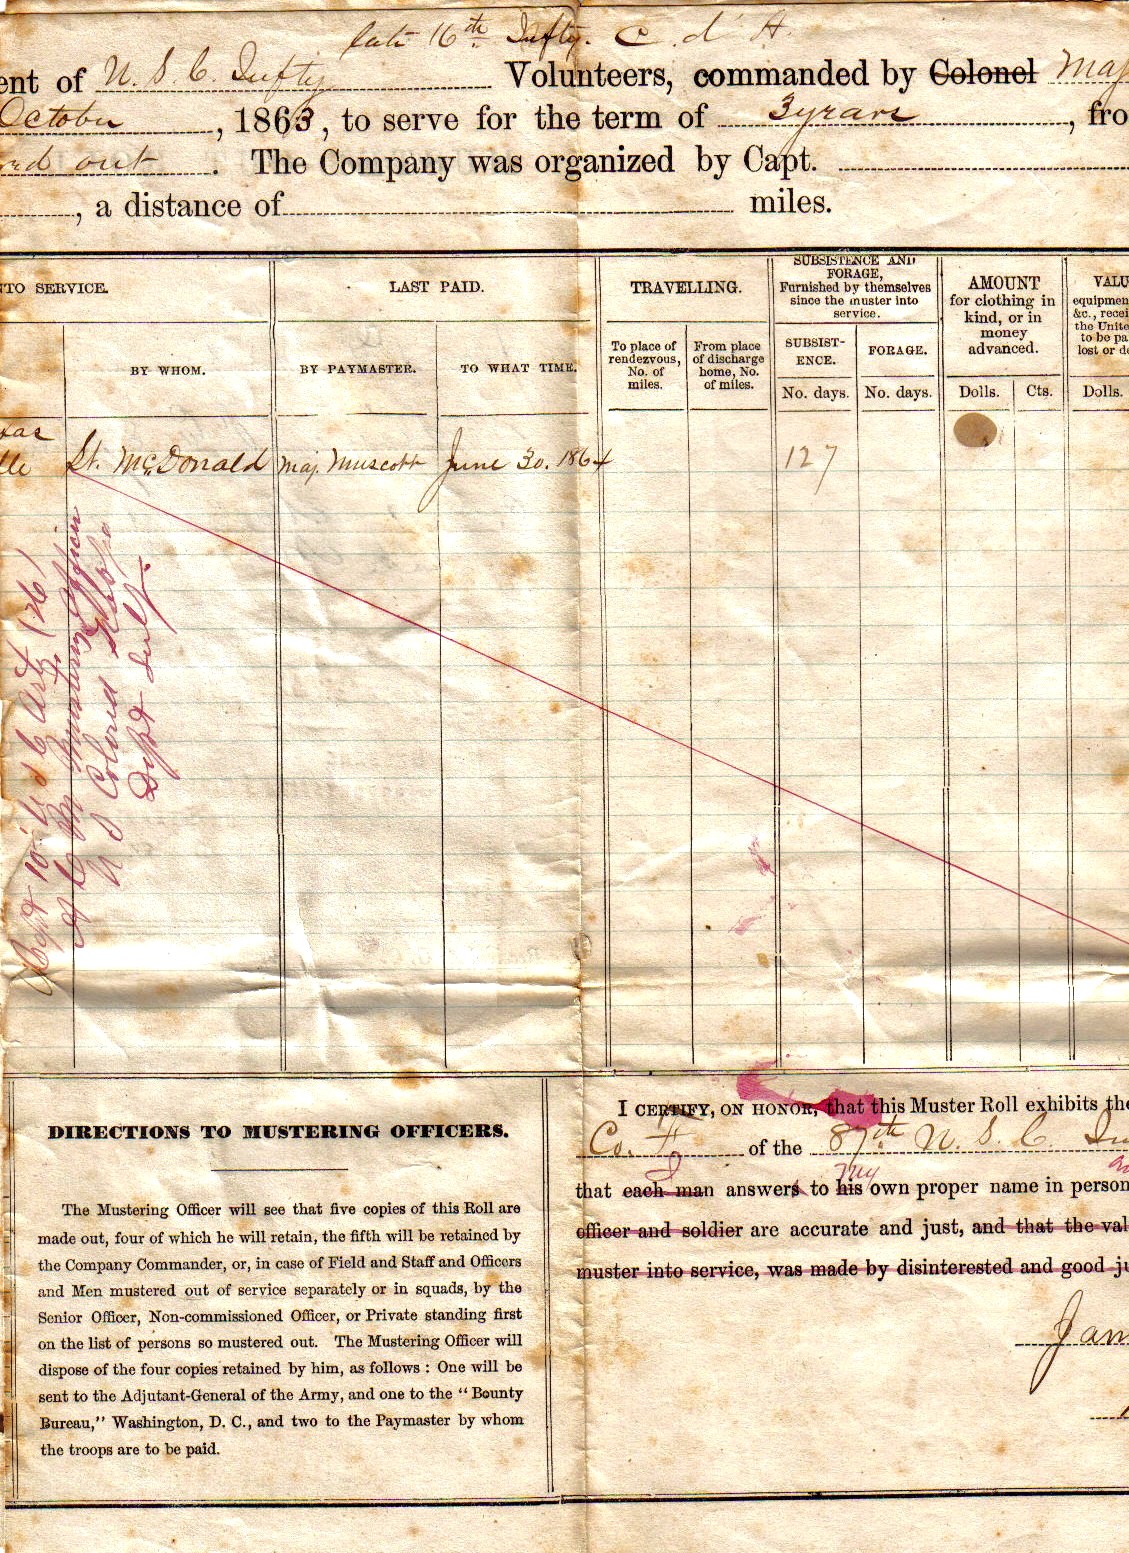 late 16th Infty. C. d' A.
ent of U. S. C. Infty Volunteers, commanded by Colonel Maj
October, 1863, to serve for the term of 3 years, fro
red out. The Company was organized by Capt.
, a distance of miles.
NTO SERVICE.
LAST PAID.
TRAVELLING.
SUBSISTENCE AND
FORAGE,
Furnished by themselves
since the muster into
service.
AMOUNT
for clothing in
kind, or in
money
advanced.
VALU
equipmen
&c., recei
the Unite
to be pa
lost or de
BY WHOM.
BY PAYMASTER.
TO WHAT TIME.
To place of
rendezvous,
No. of
miles.
From place
of discharge
home, No.
of miles.
SUBSIST-
ENCE.
FORAGE.
No. days.
No. days.
Dolls.
Cts.
Dolls.
xas
lle Lt. McDonald Maj. Muscott June 30. 1864 127
Capt 10" U S C Arty (H)
A C M Mustering Officer
U S Colored Troops
Dept Gulf.
DIRECTIONS TO MUSTERING OFFICERS.
The Mustering Officer will see that five copies of this Roll are
made out, four of which he will retain, the fifth will be retained by
the Company Commander, or, in case of Field and Staff and Officers
and Men mustered out of service separately or in squads, by the
Senior Officer, Non-commissioned Officer, or Private standing first
on the list of persons so mustered out. The Mustering Officer will
dispose of the four copies retained by him, as follows : One will be
sent to the Adjutant-General of the Army, and one to the "Bounty
Bureau," Washington, D. C., and two to the Paymaster by whom
the troops are to be paid.
I CERTIFY, ON HONOR, that this Muster Roll exhibits the
Co. of the 87th U. S. C. In
I my
that each man answers to his own proper name in person
officer and soldier are accurate and just, and that the val
muster into service, was made by disinterested and good ju
Jam